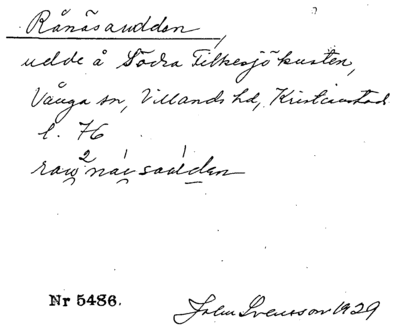 Rånäsaudden,
udde å Södra Filkesjökusten,
Vånga sn, Villands hd, Kristianstad
l. 76
Nr 5486.
John Svensson 1929